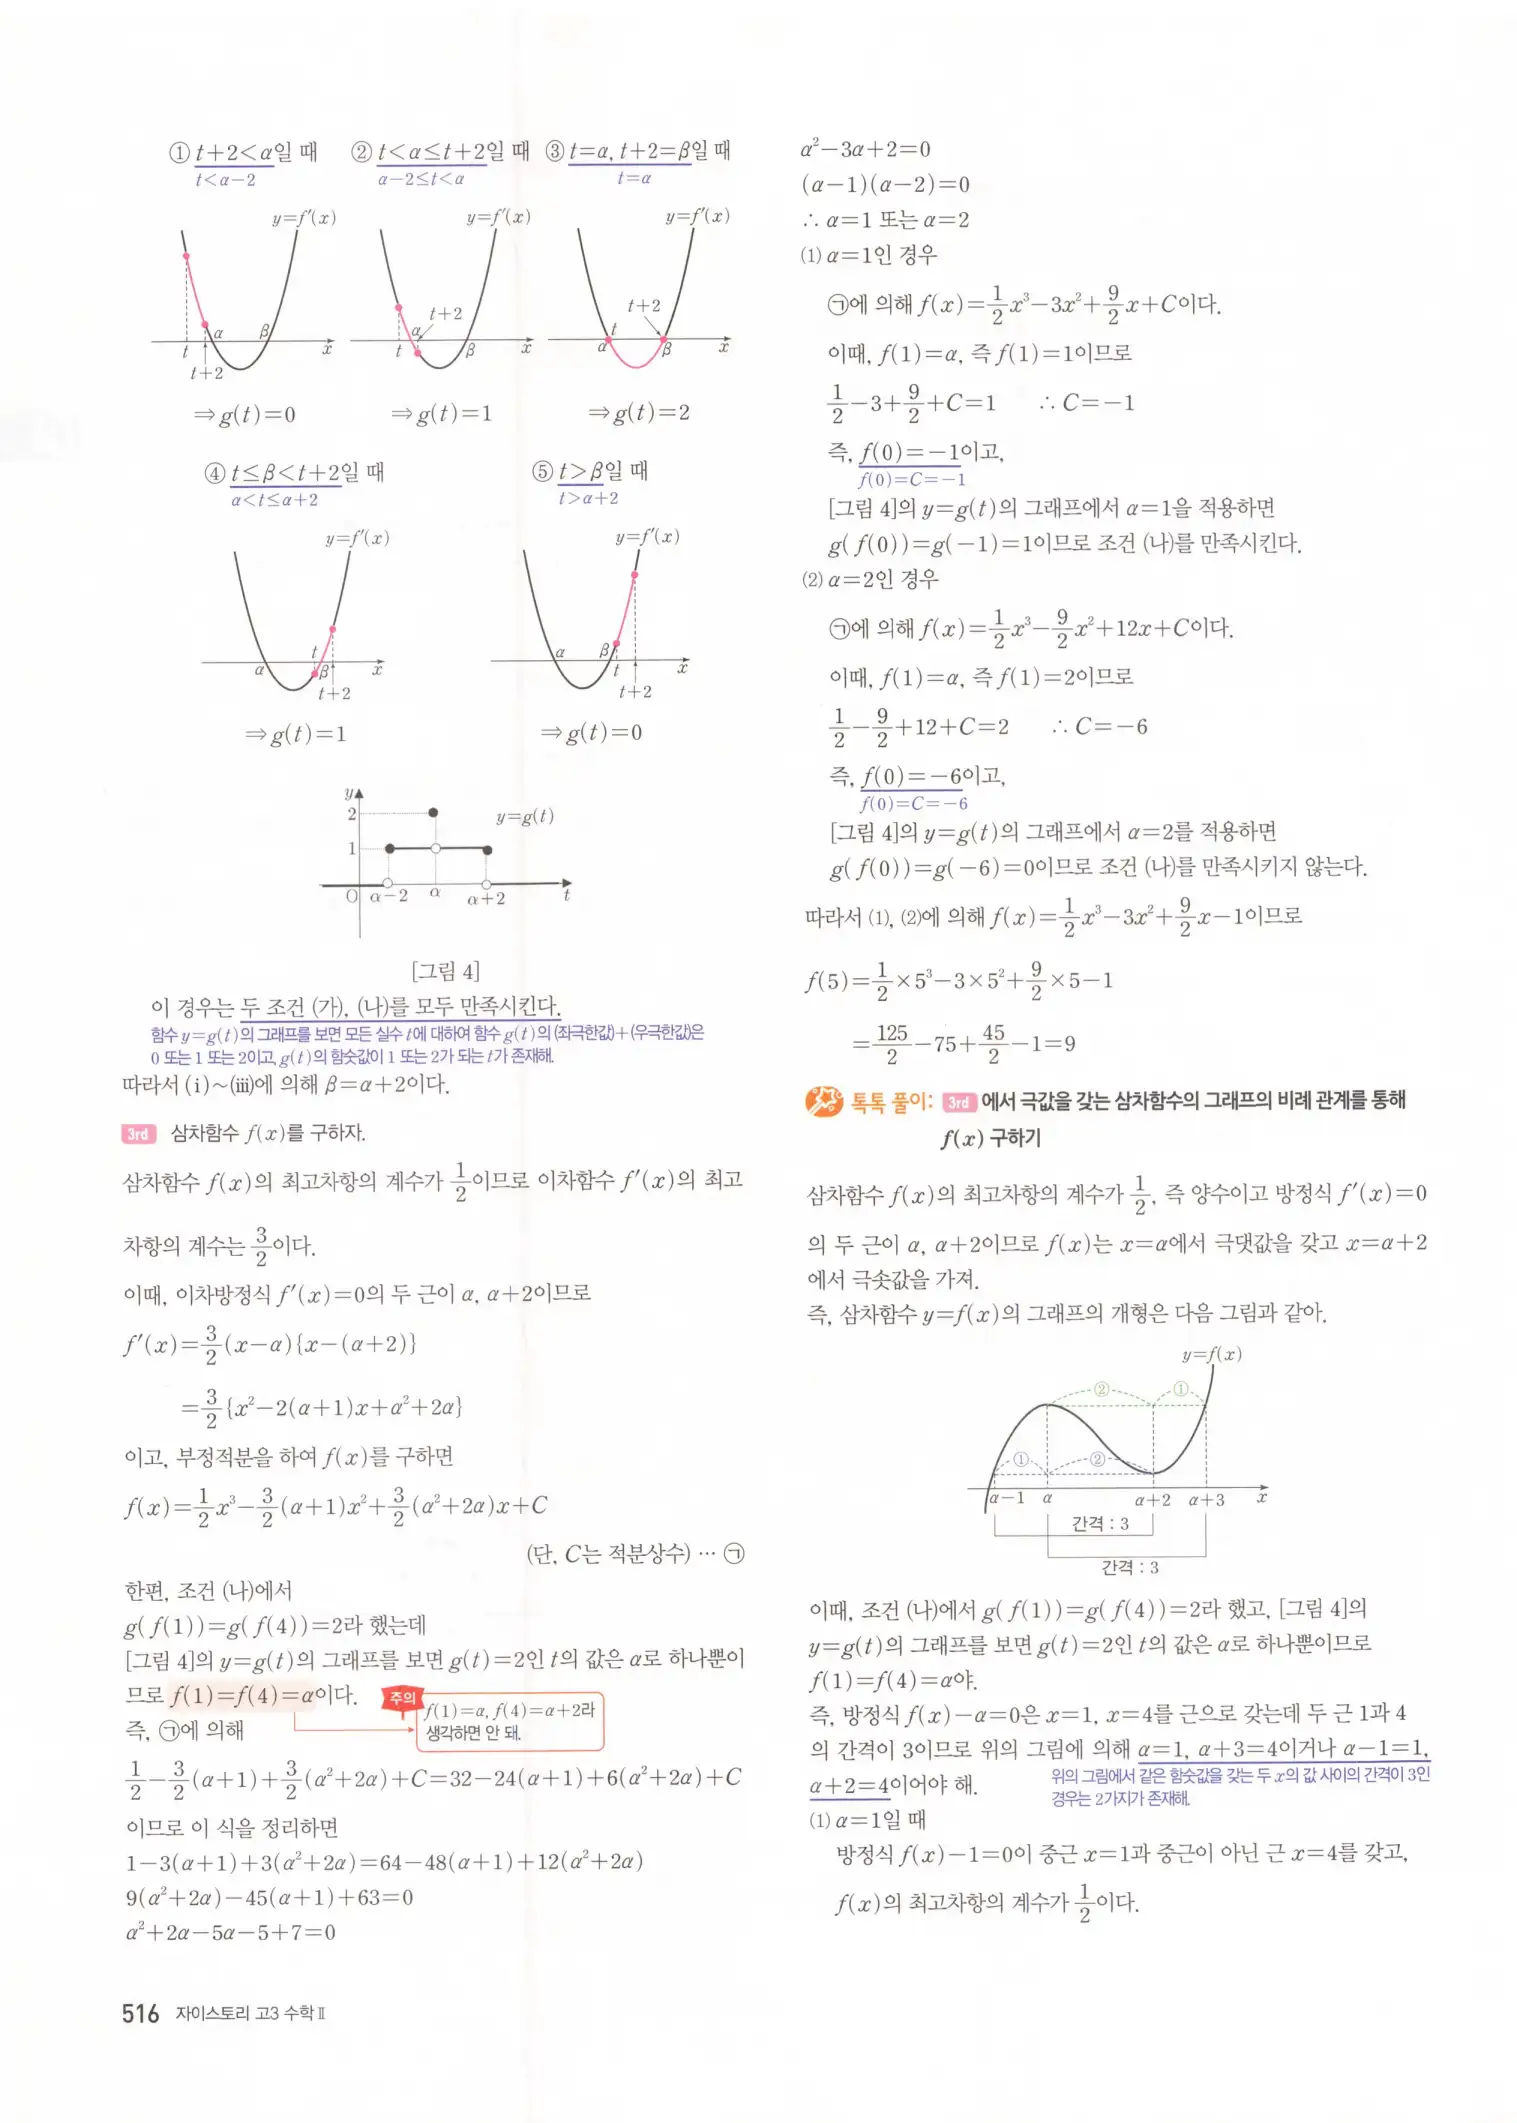 ① t+2<α일 때 ② t<α≤t+2일 때 ③ t=α, t+2=β일 때
t<α−2 α−2≤t<α t=α
y=f′(x) y=f′(x) y=f′(x)
t α β x t+2
t α t+2 β x
t α t+2 β x
⇒g(t)=0 ⇒g(t)=1 ⇒g(t)=2
④ t≤β<t+2일 때 ⑤ t>β일 때
α<t≤α+2 t>α+2
y=f′(x) y=f′(x)
α t β x t+2
α β t x t+2
⇒g(t)=1 ⇒g(t)=0
y
2 y=g(t)
1
O α−2 α α+2 t
[그림 4]
이 경우는 두 조건 (가), (나)를 모두 만족시킨다.
함수 y=g(t)의 그래프를 보면 모든 실수 t에 대하여 함수 g(t)의 (좌극한값)+(우극한값)은
0 또는 1 또는 2이고, g(t)의 함숫값이 1 또는 2가 되는 t가 존재해.
따라서 (ⅰ)~(ⅲ)에 의해 β=α+2이다.
3rd 삼차함수 f(x)를 구하자.
삼차함수 f(x)의 최고차항의 계수가 1/2이므로 이차함수 f′(x)의 최고
차항의 계수는 3/2이다.
이때, 이차방정식 f′(x)=0의 두 근이 α, α+2이므로
f′(x)=3/2(x−α){x−(α+2)}
=3/2{x²−2(α+1)x+α²+2α}
이고, 부정적분을 하여 f(x)를 구하면
f(x)=1/2x³−3/2(α+1)x²+3/2(α²+2α)x+C
(단, C는 적분상수) … ㉠
한편, 조건 (나)에서
g(f(1))=g(f(4))=2라 했는데
[그림 4]의 y=g(t)의 그래프를 보면 g(t)=2인 t의 값은 α로 하나뿐이
므로 f(1)=f(4)=α이다.
주의 f(1)=α, f(4)=α+2라
생각하면 안 돼.
즉, ㉠에 의해
1/2−3/2(α+1)+3/2(α²+2α)+C=32−24(α+1)+6(α²+2α)+C
이므로 이 식을 정리하면
1−3(α+1)+3(α²+2α)=64−48(α+1)+12(α²+2α)
9(α²+2α)−45(α+1)+63=0
α²+2α−5α−5+7=0
α²−3α+2=0
(α−1)(α−2)=0
∴ α=1 또는 α=2
(1) α=1인 경우
㉠에 의해 f(x)=1/2x³−3x²+9/2x+C이다.
이때, f(1)=α, 즉 f(1)=1이므로
1/2−3+9/2+C=1 ∴ C=−1
즉, f(0)=−1이고,
f(0)=C=−1
[그림 4]의 y=g(t)의 그래프에서 α=1을 적용하면
g(f(0))=g(−1)=1이므로 조건 (나)를 만족시킨다.
(2) α=2인 경우
㉠에 의해 f(x)=1/2x³−9/2x²+12x+C이다.
이때, f(1)=α, 즉 f(1)=2이므로
1/2−9/2+12+C=2 ∴ C=−6
즉, f(0)=−6이고,
f(0)=C=−6
[그림 4]의 y=g(t)의 그래프에서 α=2를 적용하면
g(f(0))=g(−6)=0이므로 조건 (나)를 만족시키지 않는다.
따라서 (1), (2)에 의해 f(x)=1/2x³−3x²+9/2x−1이므로
f(5)=1/2×5³−3×5²+9/2×5−1
=125/2−75+45/2−1=9
톡톡 풀이: 3rd 에서 극값을 갖는 삼차함수의 그래프의 비례 관계를 통해
f(x) 구하기
삼차함수 f(x)의 최고차항의 계수가 1/2, 즉 양수이고 방정식 f′(x)=0
의 두 근이 α, α+2이므로 f(x)는 x=α에서 극댓값을 갖고 x=α+2
에서 극솟값을 가져.
즉, 삼차함수 y=f(x)의 그래프의 개형은 다음 그림과 같아.
y=f(x)
② ①
① ②
α−1 α α+2 α+3 x
간격 : 3
간격 : 3
이때, 조건 (나)에서 g(f(1))=g(f(4))=2라 했고, [그림 4]의
y=g(t)의 그래프를 보면 g(t)=2인 t의 값은 α로 하나뿐이므로
f(1)=f(4)=α야.
즉, 방정식 f(x)−α=0은 x=1, x=4를 근으로 갖는데 두 근 1과 4
의 간격이 3이므로 위의 그림에 의해 α=1, α+3=4이거나 α−1=1,
α+2=4이어야 해.
위의 그림에서 같은 함숫값을 갖는 두 x의 값 사이의 간격이 3인
경우는 2가지가 존재해.
(1) α=1일 때
방정식 f(x)−1=0이 중근 x=1과 중근이 아닌 근 x=4를 갖고,
f(x)의 최고차항의 계수가 1/2이다.
516 자이스토리 고3 수학Ⅱ